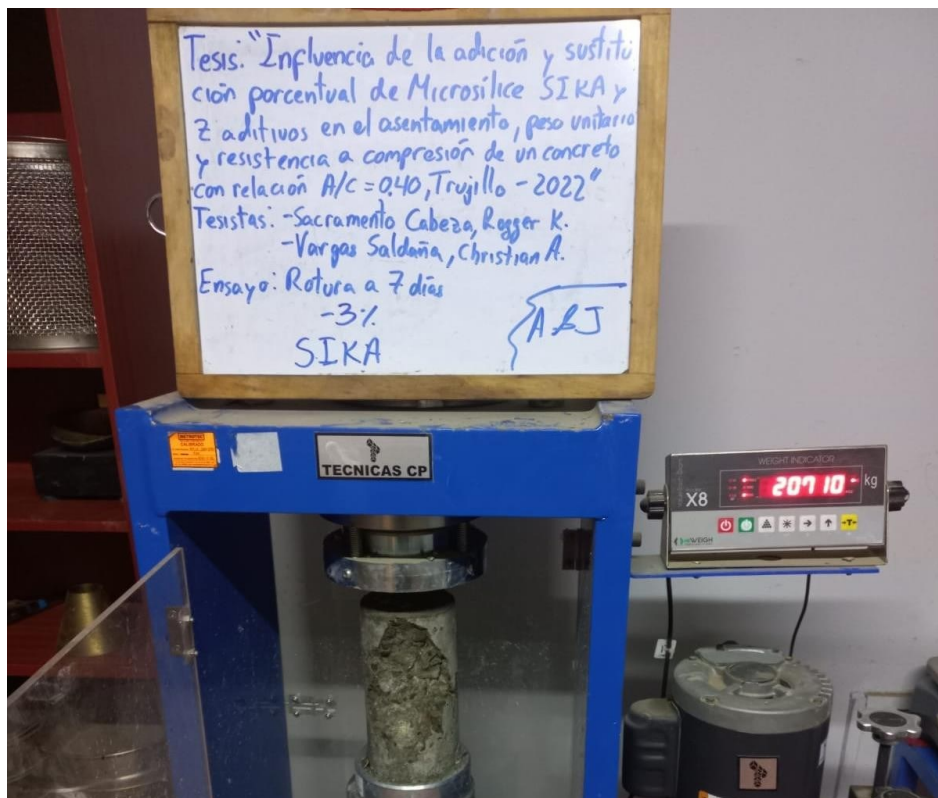 Tesis: "Influencia de la adición y sustitu
ción porcentual de Microsílice SIKA y
2 aditivos en el asentamiento, peso unitario
y resistencia a compresión de un concreto
con relación A/C = 0.40, Trujillo - 2022"
Tesistas: -Sacramento Cabeza, Rogger K.
-Vargas Saldaña, Christian A.
Ensayo: Rotura a 7 días
-3%
SIKA
ABJ
TECNICAS CP
WEIGHT INDICATOR
X8
20710 kg
HIWEIGH